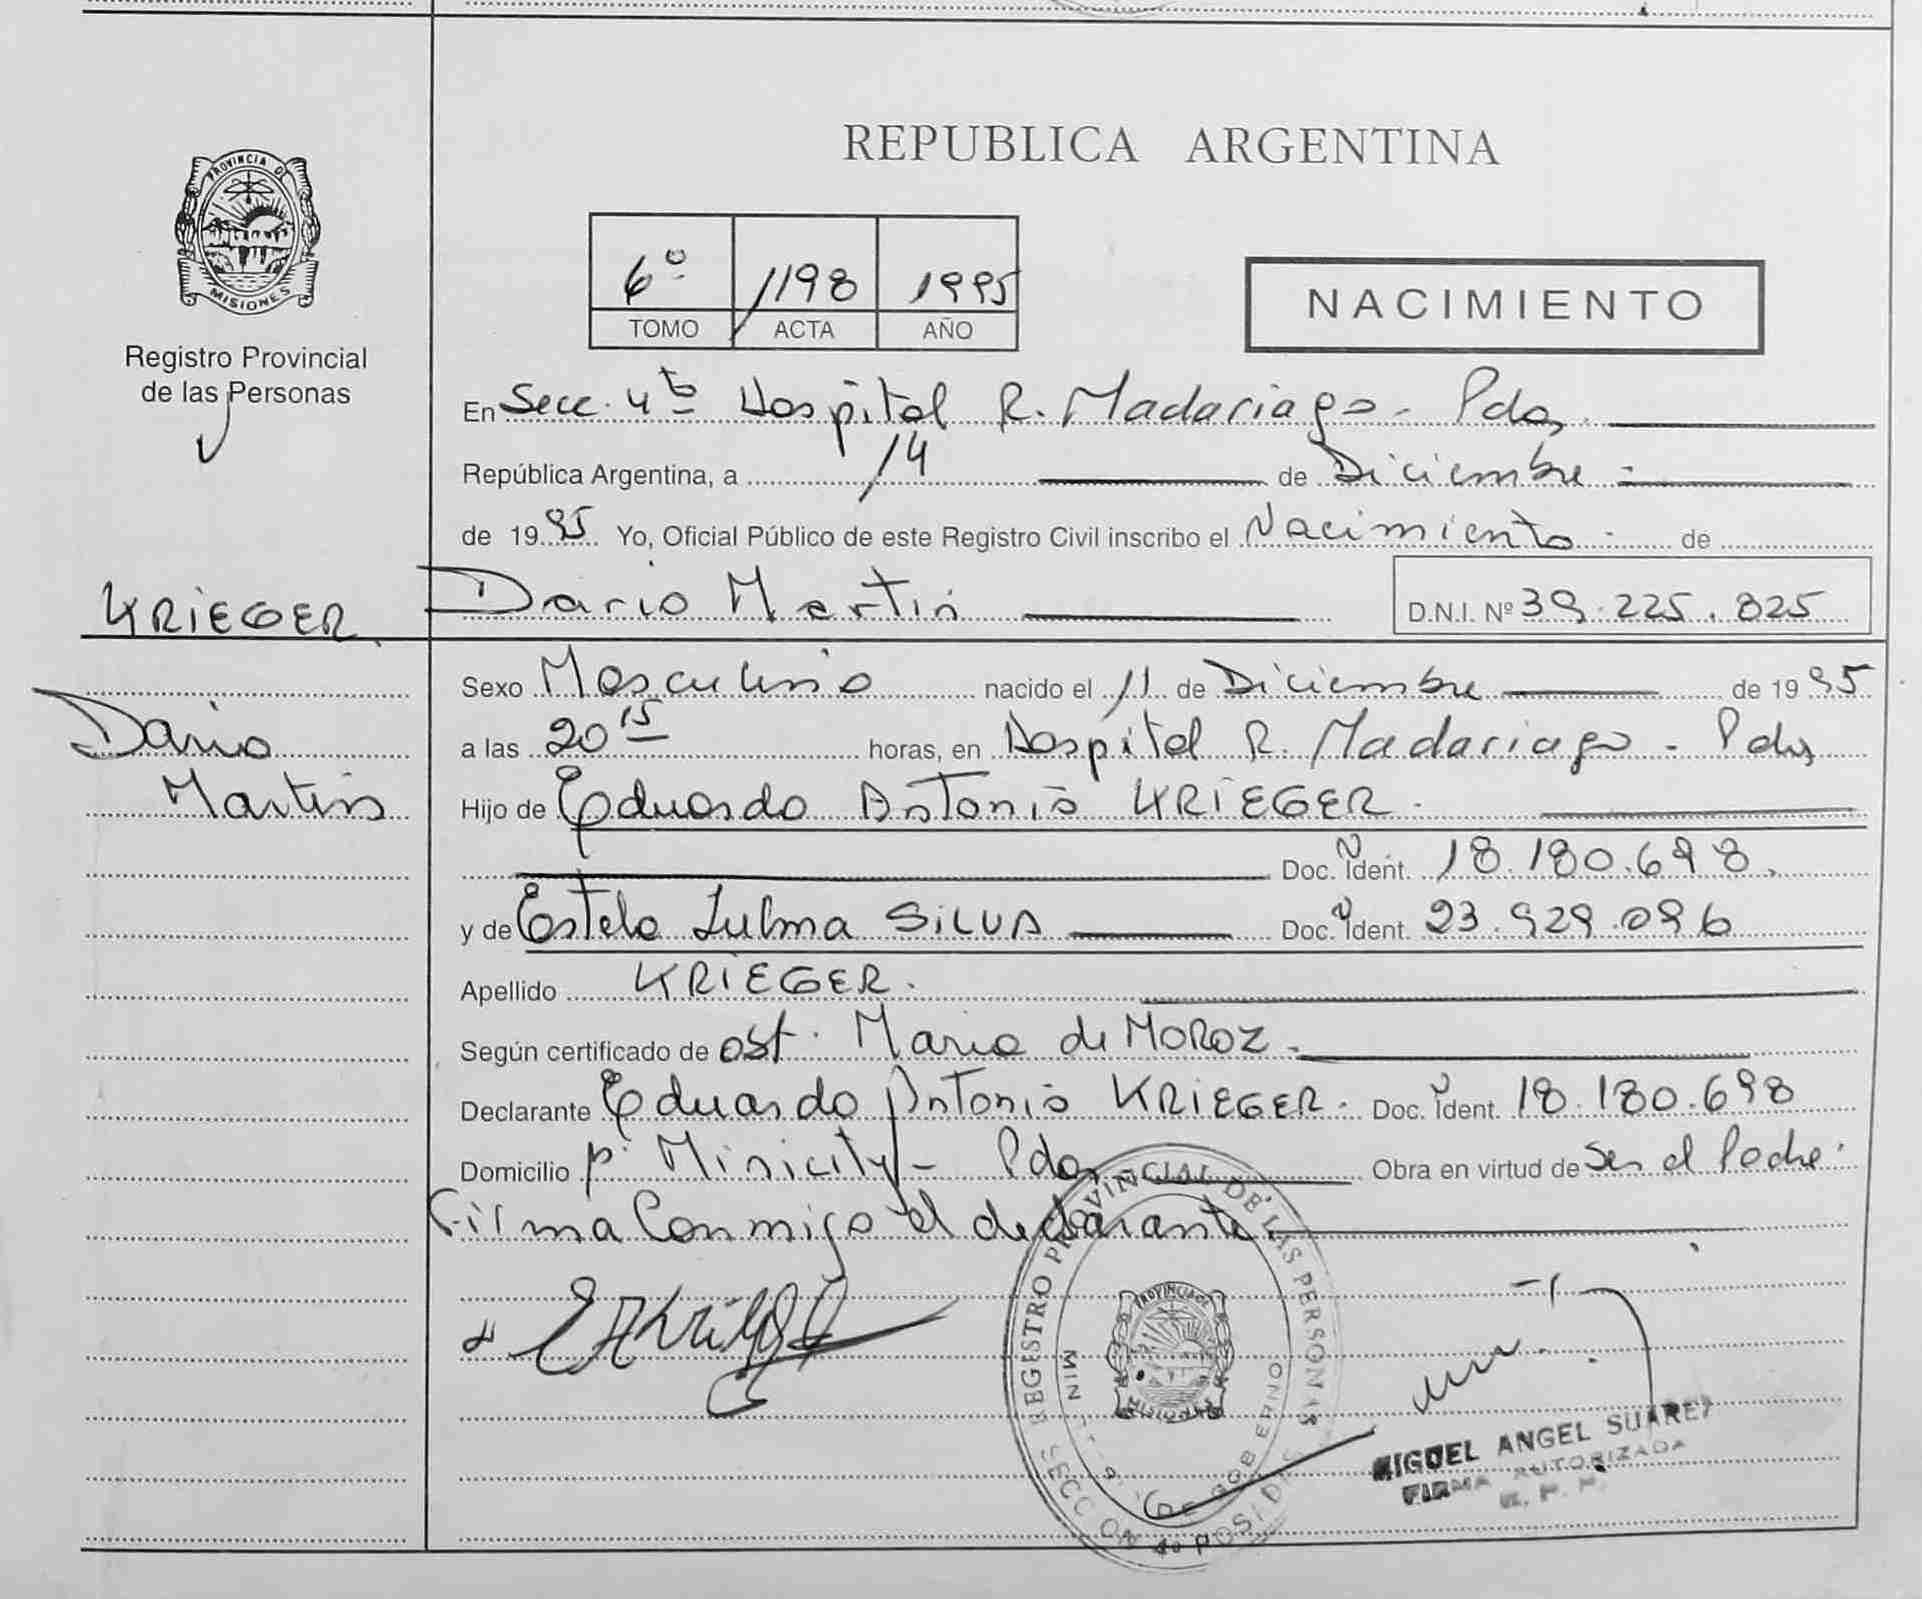 REPUBLICA ARGENTINA
PROVINCIA DE
MISIONES
Registro Provincial
de las Personas
6º 1198 1995
TOMO ACTA AÑO
NACIMIENTO
En Secc. 4ta Hospital R. Madariaga - Pdas.
República Argentina, a 14 de Diciembre
de 1995 Yo, Oficial Público de este Registro Civil inscribo el Nacimiento de
KRIEGER Dario Martin D.N.I. Nº 39.225.825
Sexo Masculino nacido el 11 de Diciembre de 1995
Dario
a las 20 15 horas, en Hospital R. Madariaga - Pdas
Martin
Hijo de Eduardo Antonio KRIEGER.
Doc. Ident. 18.180.698.
y de Estela Zulma SILVA Doc. Ident. 23.929.096
Apellido KRIEGER.
Según certificado de obst. Maria de MOROZ.
Declarante Eduardo Antonio KRIEGER. Doc. Ident. 18.180.698
Domicilio Minicity - Pdas Obra en virtud de Ser el Padre.
Firma Conmigo el declarante
REGISTRO PROVINCIAL DE LAS PERSONAS
PROVINCIA DE
MISIONES
MIN DE GOBIERNO
SECCION 4a POSADAS
MIGUEL ANGEL SUAREZ
FIRMA AUTORIZADA
R. P. P.